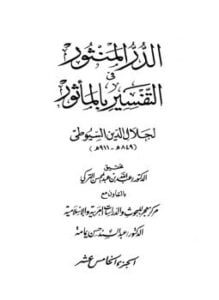 الدر المنثور
فى
التفسير بالمأثور
لجلال الدين السيوطى
(٨٤٩هـ - ٩١١هـ)
تحقيق
الدكتور عبد الله بن عبد المحسن التركى
بالتعاون مع
مركز هجر للبحوث والدراسات العربية والإسلامية
الدكتور عبد السند حسن يمامة
الجزء الخامس عشر